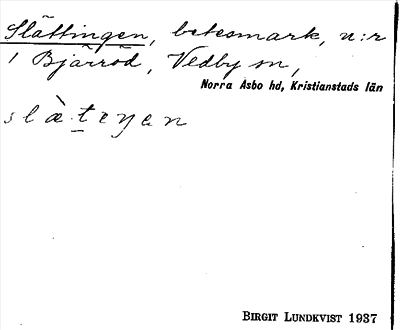 Slättingen, betesmark, n:r
1 Bjärröd, Vedby sn,
Norra Åsbo hd, Kristianstads län
slæ̀teŋen
BIRGIT LUNDKVIST 1937